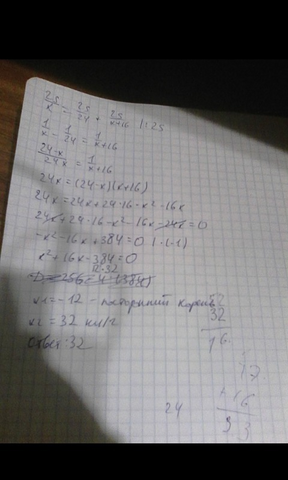 25/x = 25/24 + 25/x+16 |:25
1/x - 1/24 = 1/x+16
24-x/24x = 1/x+16
24x=(24-x)(x+16)
24x=24x+24·16-x²-16x
24x+24·16-x²-16x-24x=0
-x²-16x+384=0 |·(-1)
x²+16x-384=0
12-32
D=256-4·(-384)
x1=-12 - посторонний корень
x2=32 км/ч
ответ:32
32
16
17
+16
33
24